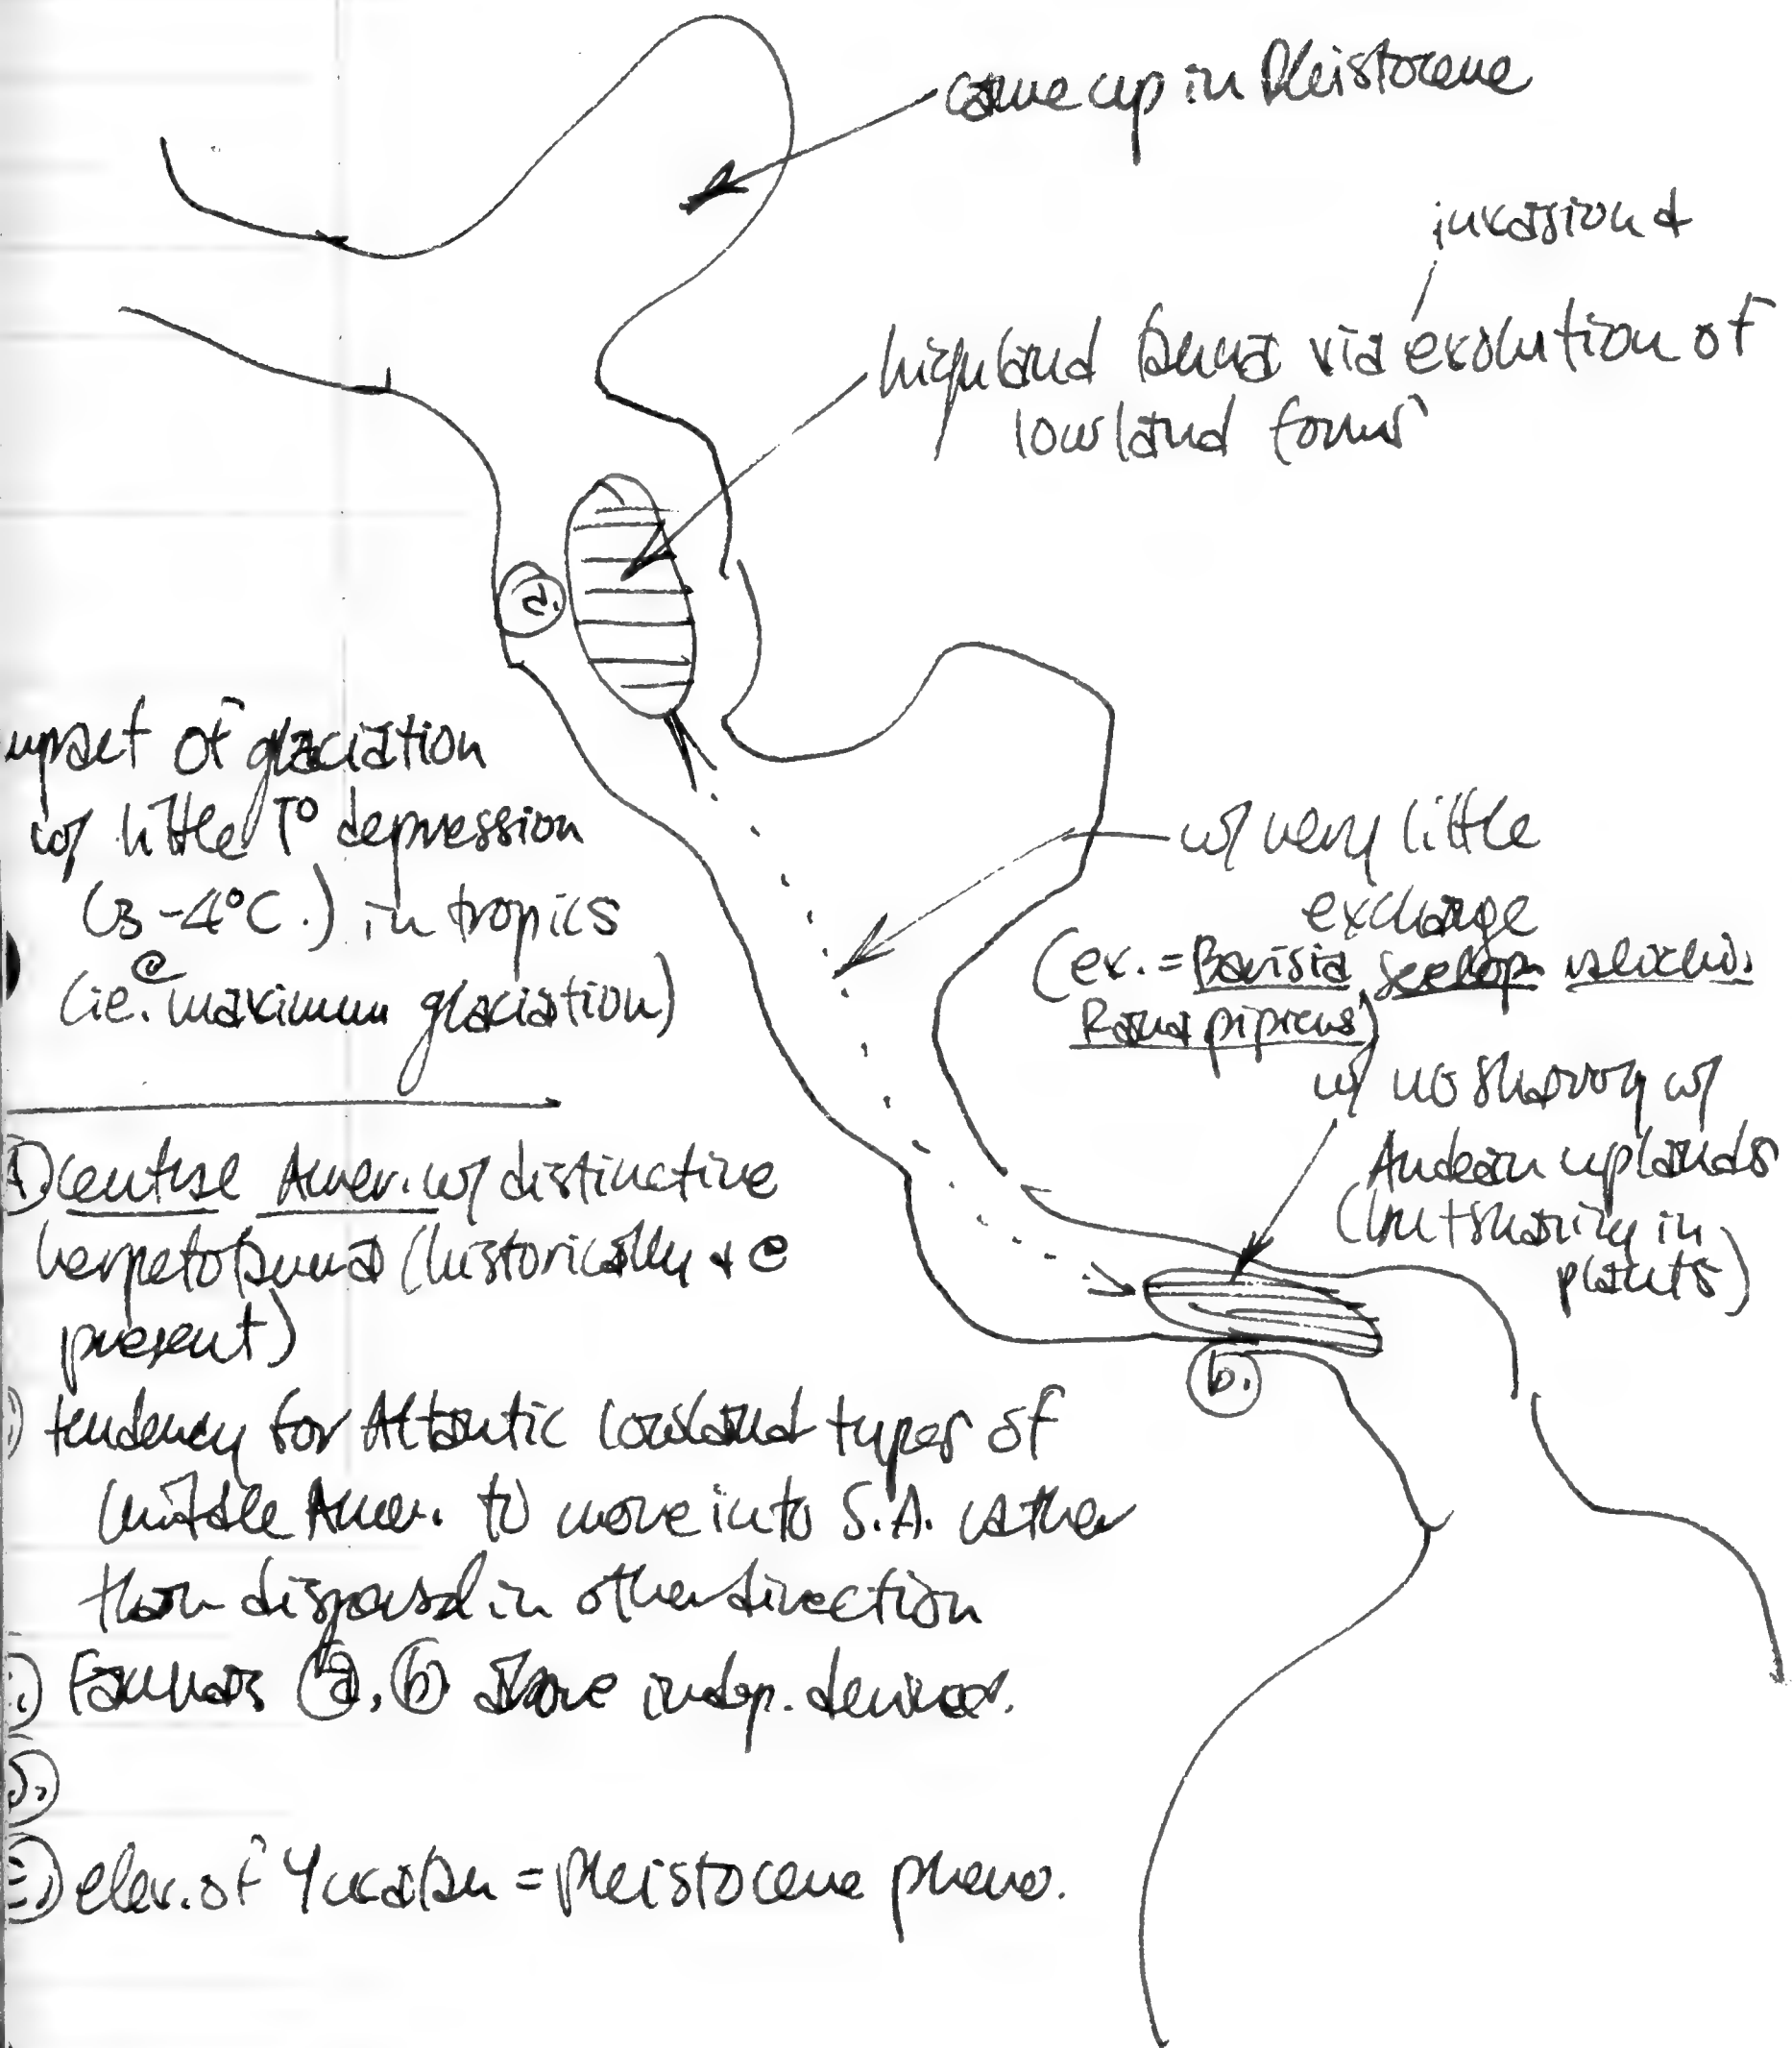 came up in Pleistocene
invasion &
highland fauna via evolution of
lowland forms
a.
impact of glaciation
w/ little T° depression
(3-4°C.) in tropics
(ie. @ maximum glaciation)
w/ very little
exchange
(ex. = Barisia
Rana pipiens)
w/ no sharing w/
Andean uplands
(but sharing in
plants)
b.
Amer. w/ distinctive
herpetofauna (historically & @
present)
tendency for Atlantic lowland types of
middle Amer. to move into S.A. rather
than dispersal in other direction
Faunas a, b above indep. derived.
elev. of Yucatan = pleistocene pheno.